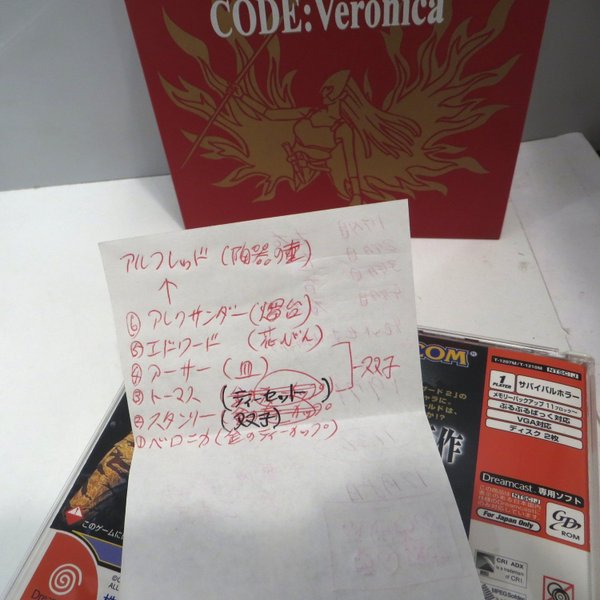 CODE:Veronica
アルフレッド (陶器の壷)
↑
⑥ アレクサンダー (燭台)
⑤ エドワード (花びん)
④ アーサー (皿)
双子
③ トーマス (ティーセット)
② スタンリー (双子)
① ベロニカ (金のティーカップ)
COM
T-1207M/T-1210M NTSC-J
1 PLAYER
サバイバルホラー
メモリーバックアップ 11ブロック〜
ぷるぷるぱっく対応
VGA対応
ディスク 2枚
作
Dreamcast 専用ソフト
For Japan Only
GD-ROM
CRI ADX
is a trademark of CRI.
MPEG Sofdec
このゲームに
Dreamcast